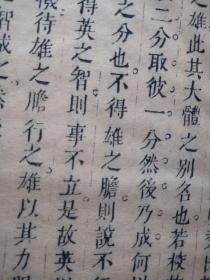 之雄此其大體之別名也若校
二分取彼一分然後乃成何
之分也不得雄之膽則說不行
得英之智則事不立是故英以
機待雄之膽行之雄以其力服
智成之然